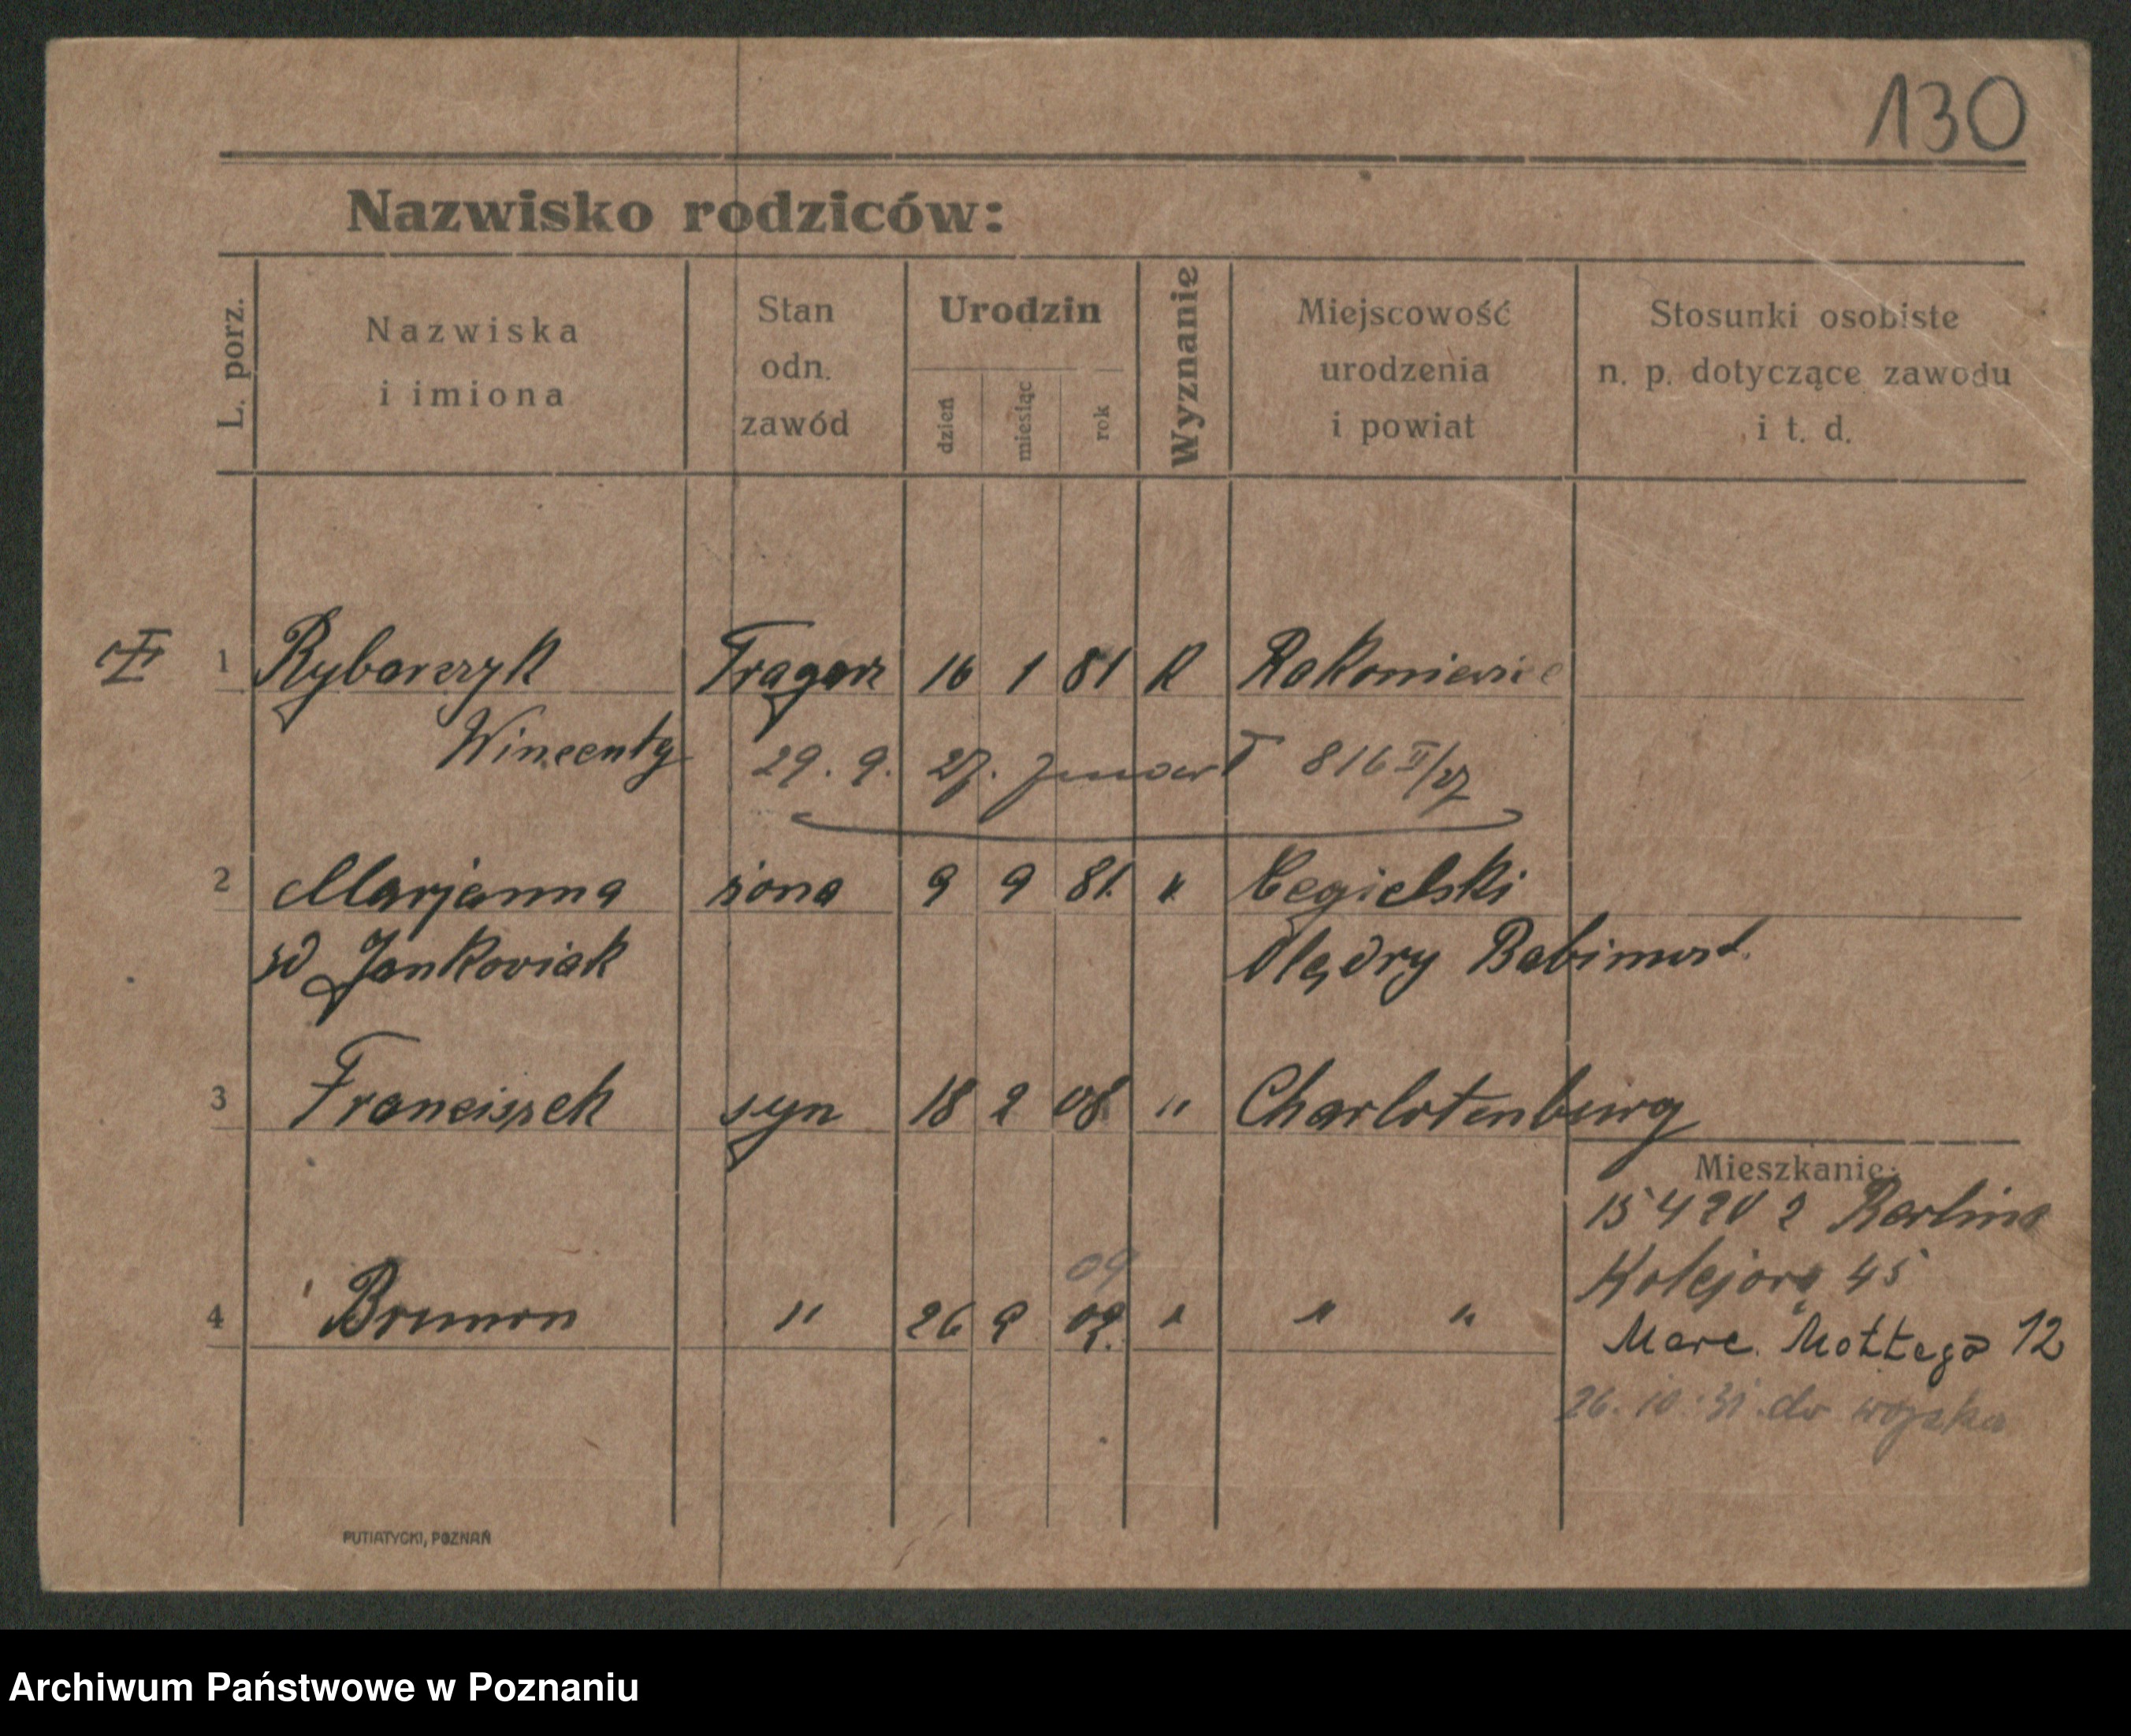 130
Nazwisko rodziców:
L. porz.
Nazwiska
i imiona
Stan
odn.
zawód
Urodzin
dzień
miesiąc
rok
Wyznanie
Miejscowość
urodzenia
i powiat
Stosunki osobiste
n. p. dotyczące zawodu
i t. d.
1 Rybarczyk Tragarz 16 1 81 K Rakoniewice
Wincenty 29. 9. 27. 816 II/27
2 Marjanna żona 9 9 81. " Cegielski
Jankowiak Olędry Babimost.
3 Franciszek syn 18 2 08 " Charlotenburg
Mieszkanie:
2 Berlina
09
Kolejowa 45
4 Brunon " 26 9 09. " " "
Marc. Mottego 12
26. 10. 31. do wojska
PUTIATYCKI, POZNAŃ
Archiwum Państwowe w Poznaniu